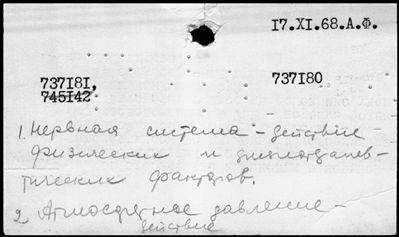 17.XI.68.А.Ф.
737181,
745142
737180
1. Нервная система - действие
физических и физиотерапев-
тических факторов.
2. Атмосферное давление -
действие